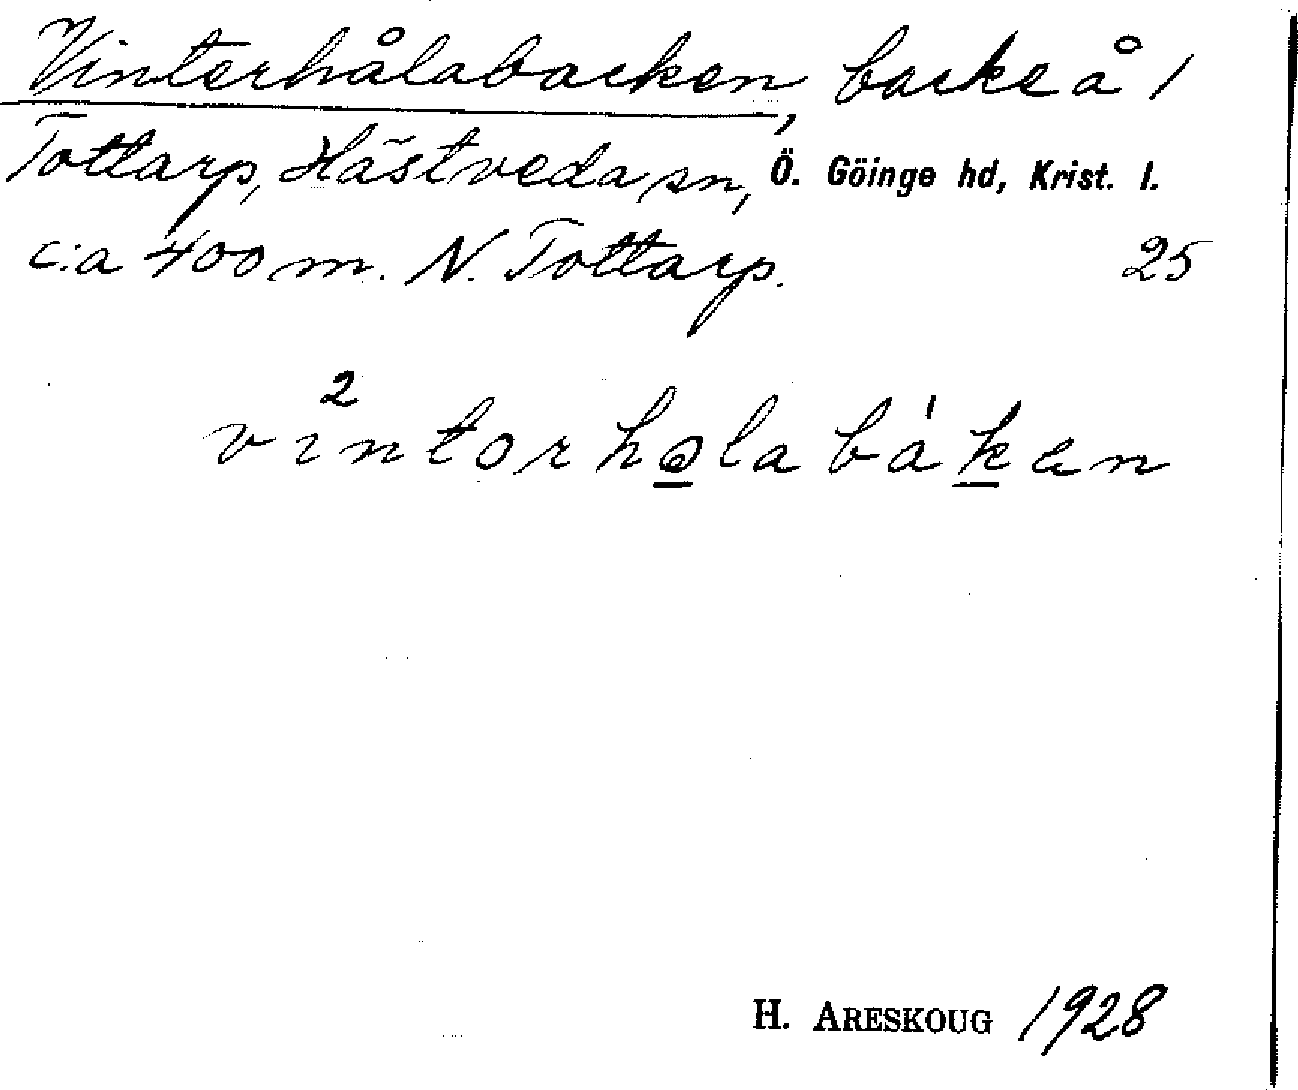 Vinterhålabacken, backe å 1
Tottarp, Hästveda sn, Ö. Göinge hd, Krist. l.
c:a 400 m. N. Tottarp. 25
2
vintorhola bákan
H. ARESKOUG 1928